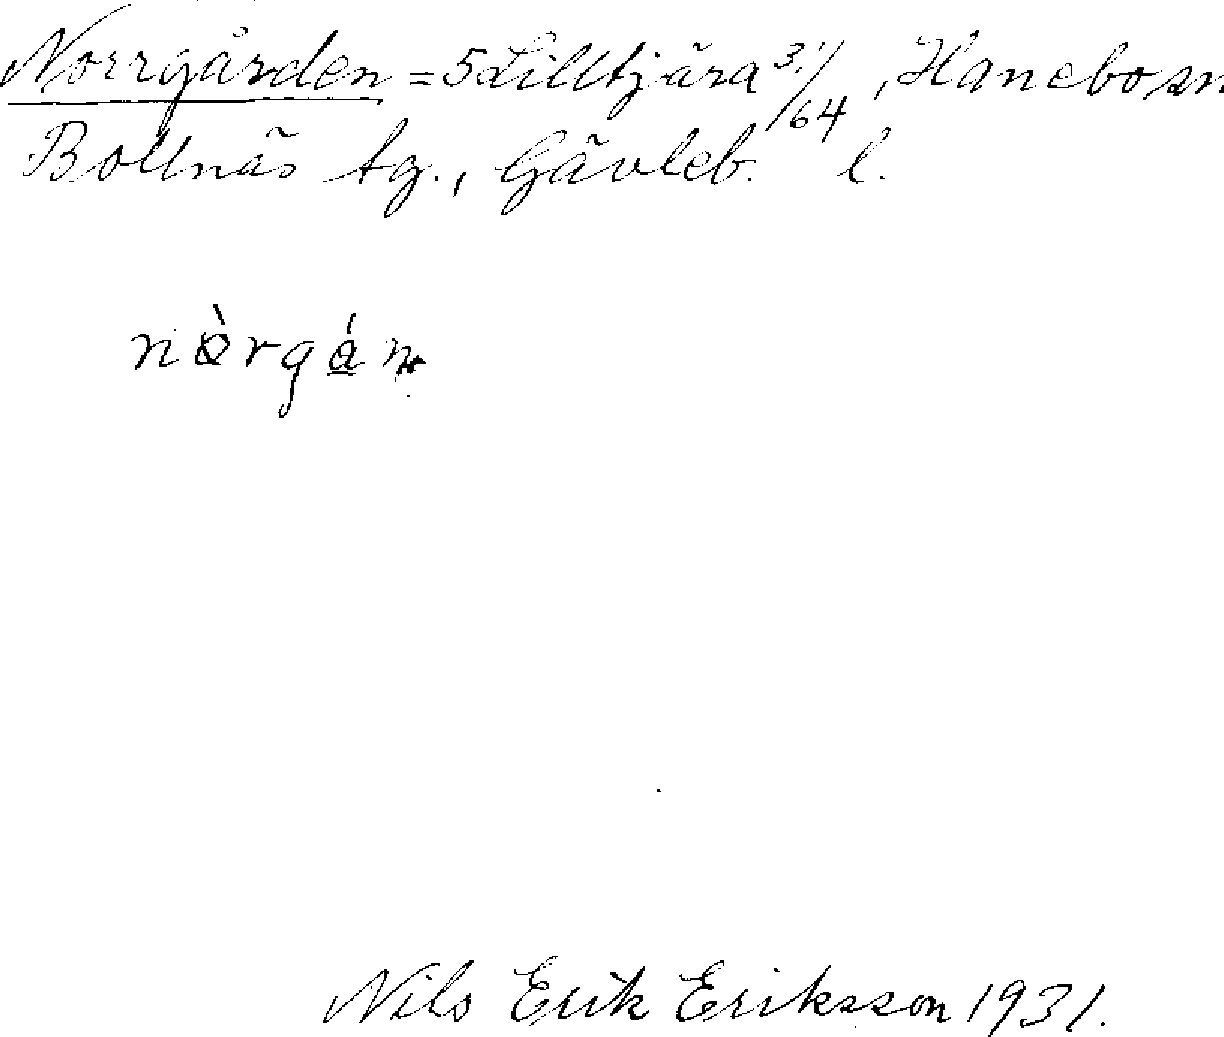 Norrgården = 5 Lilltjära 31/64, Hanebo sn
Bollnäs tg., Gävleb. l.
Nils Erik Eriksson 1931.